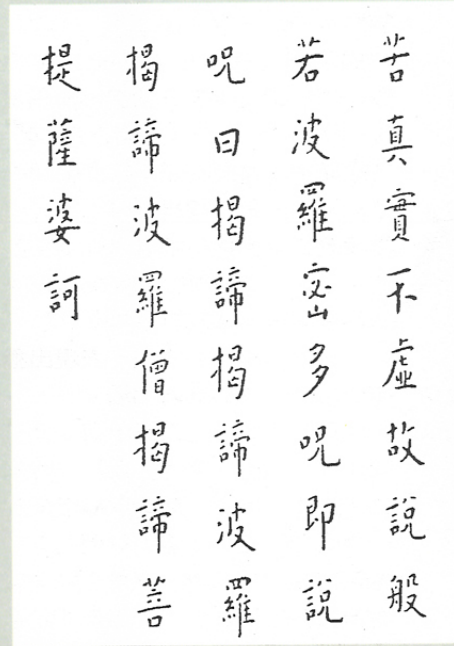 苦真實不虛故說般
若波羅密多呪即說
呪曰揭諦揭諦波羅
揭諦波羅僧揭諦菩
提薩婆訶